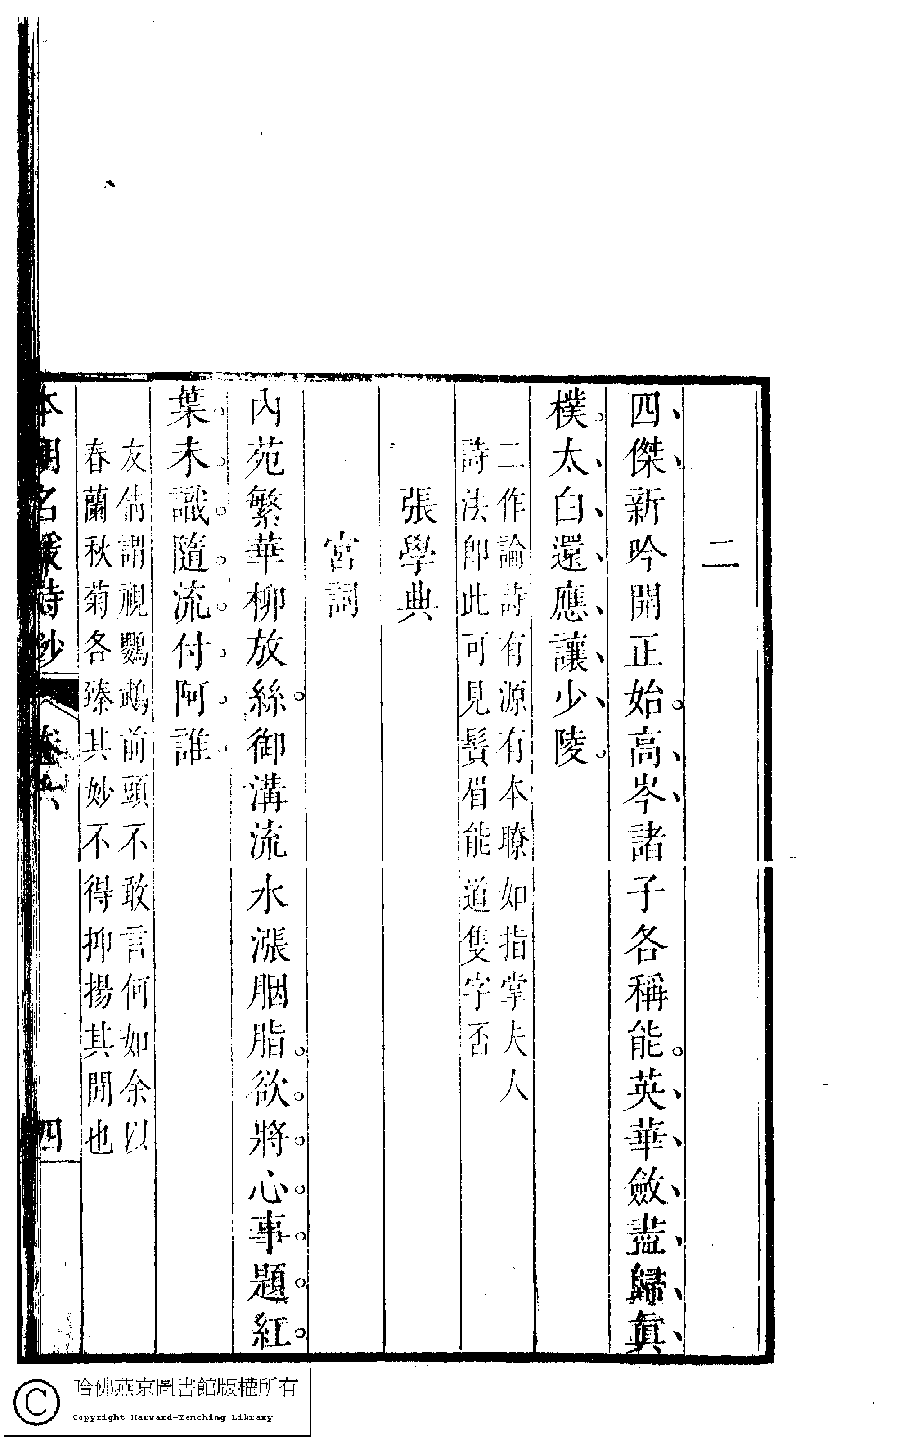 二
四傑新吟開正始高岑諸子各稱能英華斂盡歸真
樸太白還應讓少陵
二作論詩有源有本瞭如指掌夫人
詩法卽此可見鬚眉能道隻字否
張學典
宮詞
內苑繁華柳放絲御溝流水漲胭脂欲將心事題紅
葉未識隨流付阿誰
友倩謂視鸚鵡前頭不敢言何如余以
春蘭秋菊各臻其妙不得抑揚其間也
本朝名媛詩鈔
卷六
四
哈佛燕京圖書館版權所有
Copyright Harvard-Yenching Library